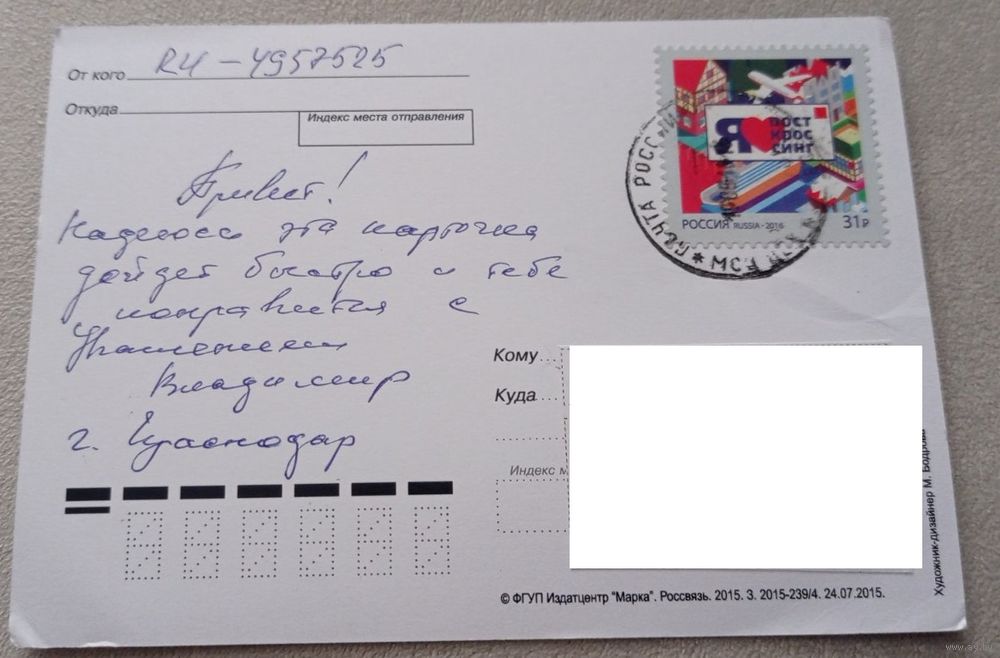 От кого RU - 4957525
Откуда
Индекс места отправления
Привет!
Надеюсь эта карточка
дойдет быстро и тебе
понравится с
Уважением
Владимир
г. Краснодар
Я ПОСТ
КРОС
СИНГ
РОССИЯ RUSSIA · 2016 31 Р
ПОЧТА РОССИИ
Кому
Куда
Индекс м
© ФГУП Издатцентр "Марка". Россвязь. 2015. З. 2015-239/4. 24.07.2015.
Художник-дизайнер М. Бодрова
www.ay.by